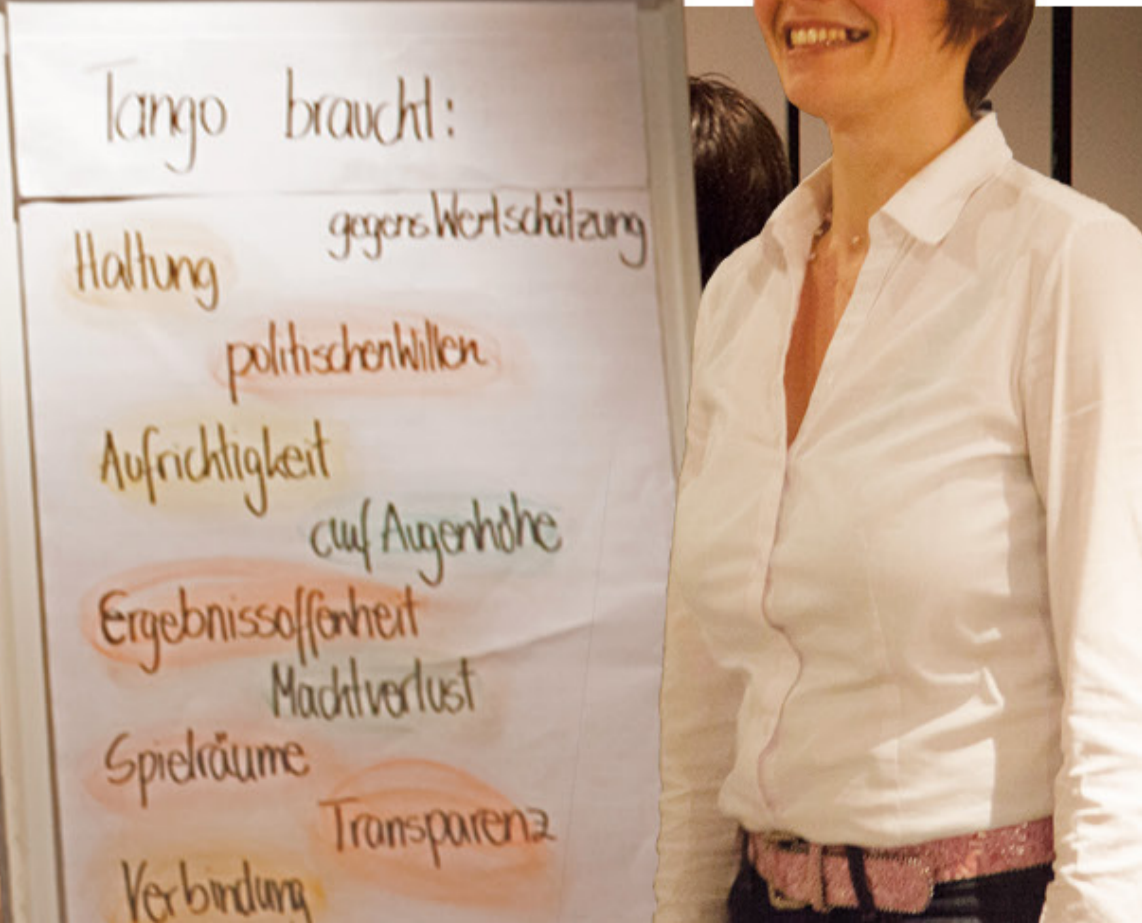 Tango braucht:
gegens Wertschätzung
Haltung
politischen Willen
Aufrichtigkeit
auf Augenhöhe
Ergebnissoffenheit
Machtverlust
Spielräume
Transparenz
Verbindung